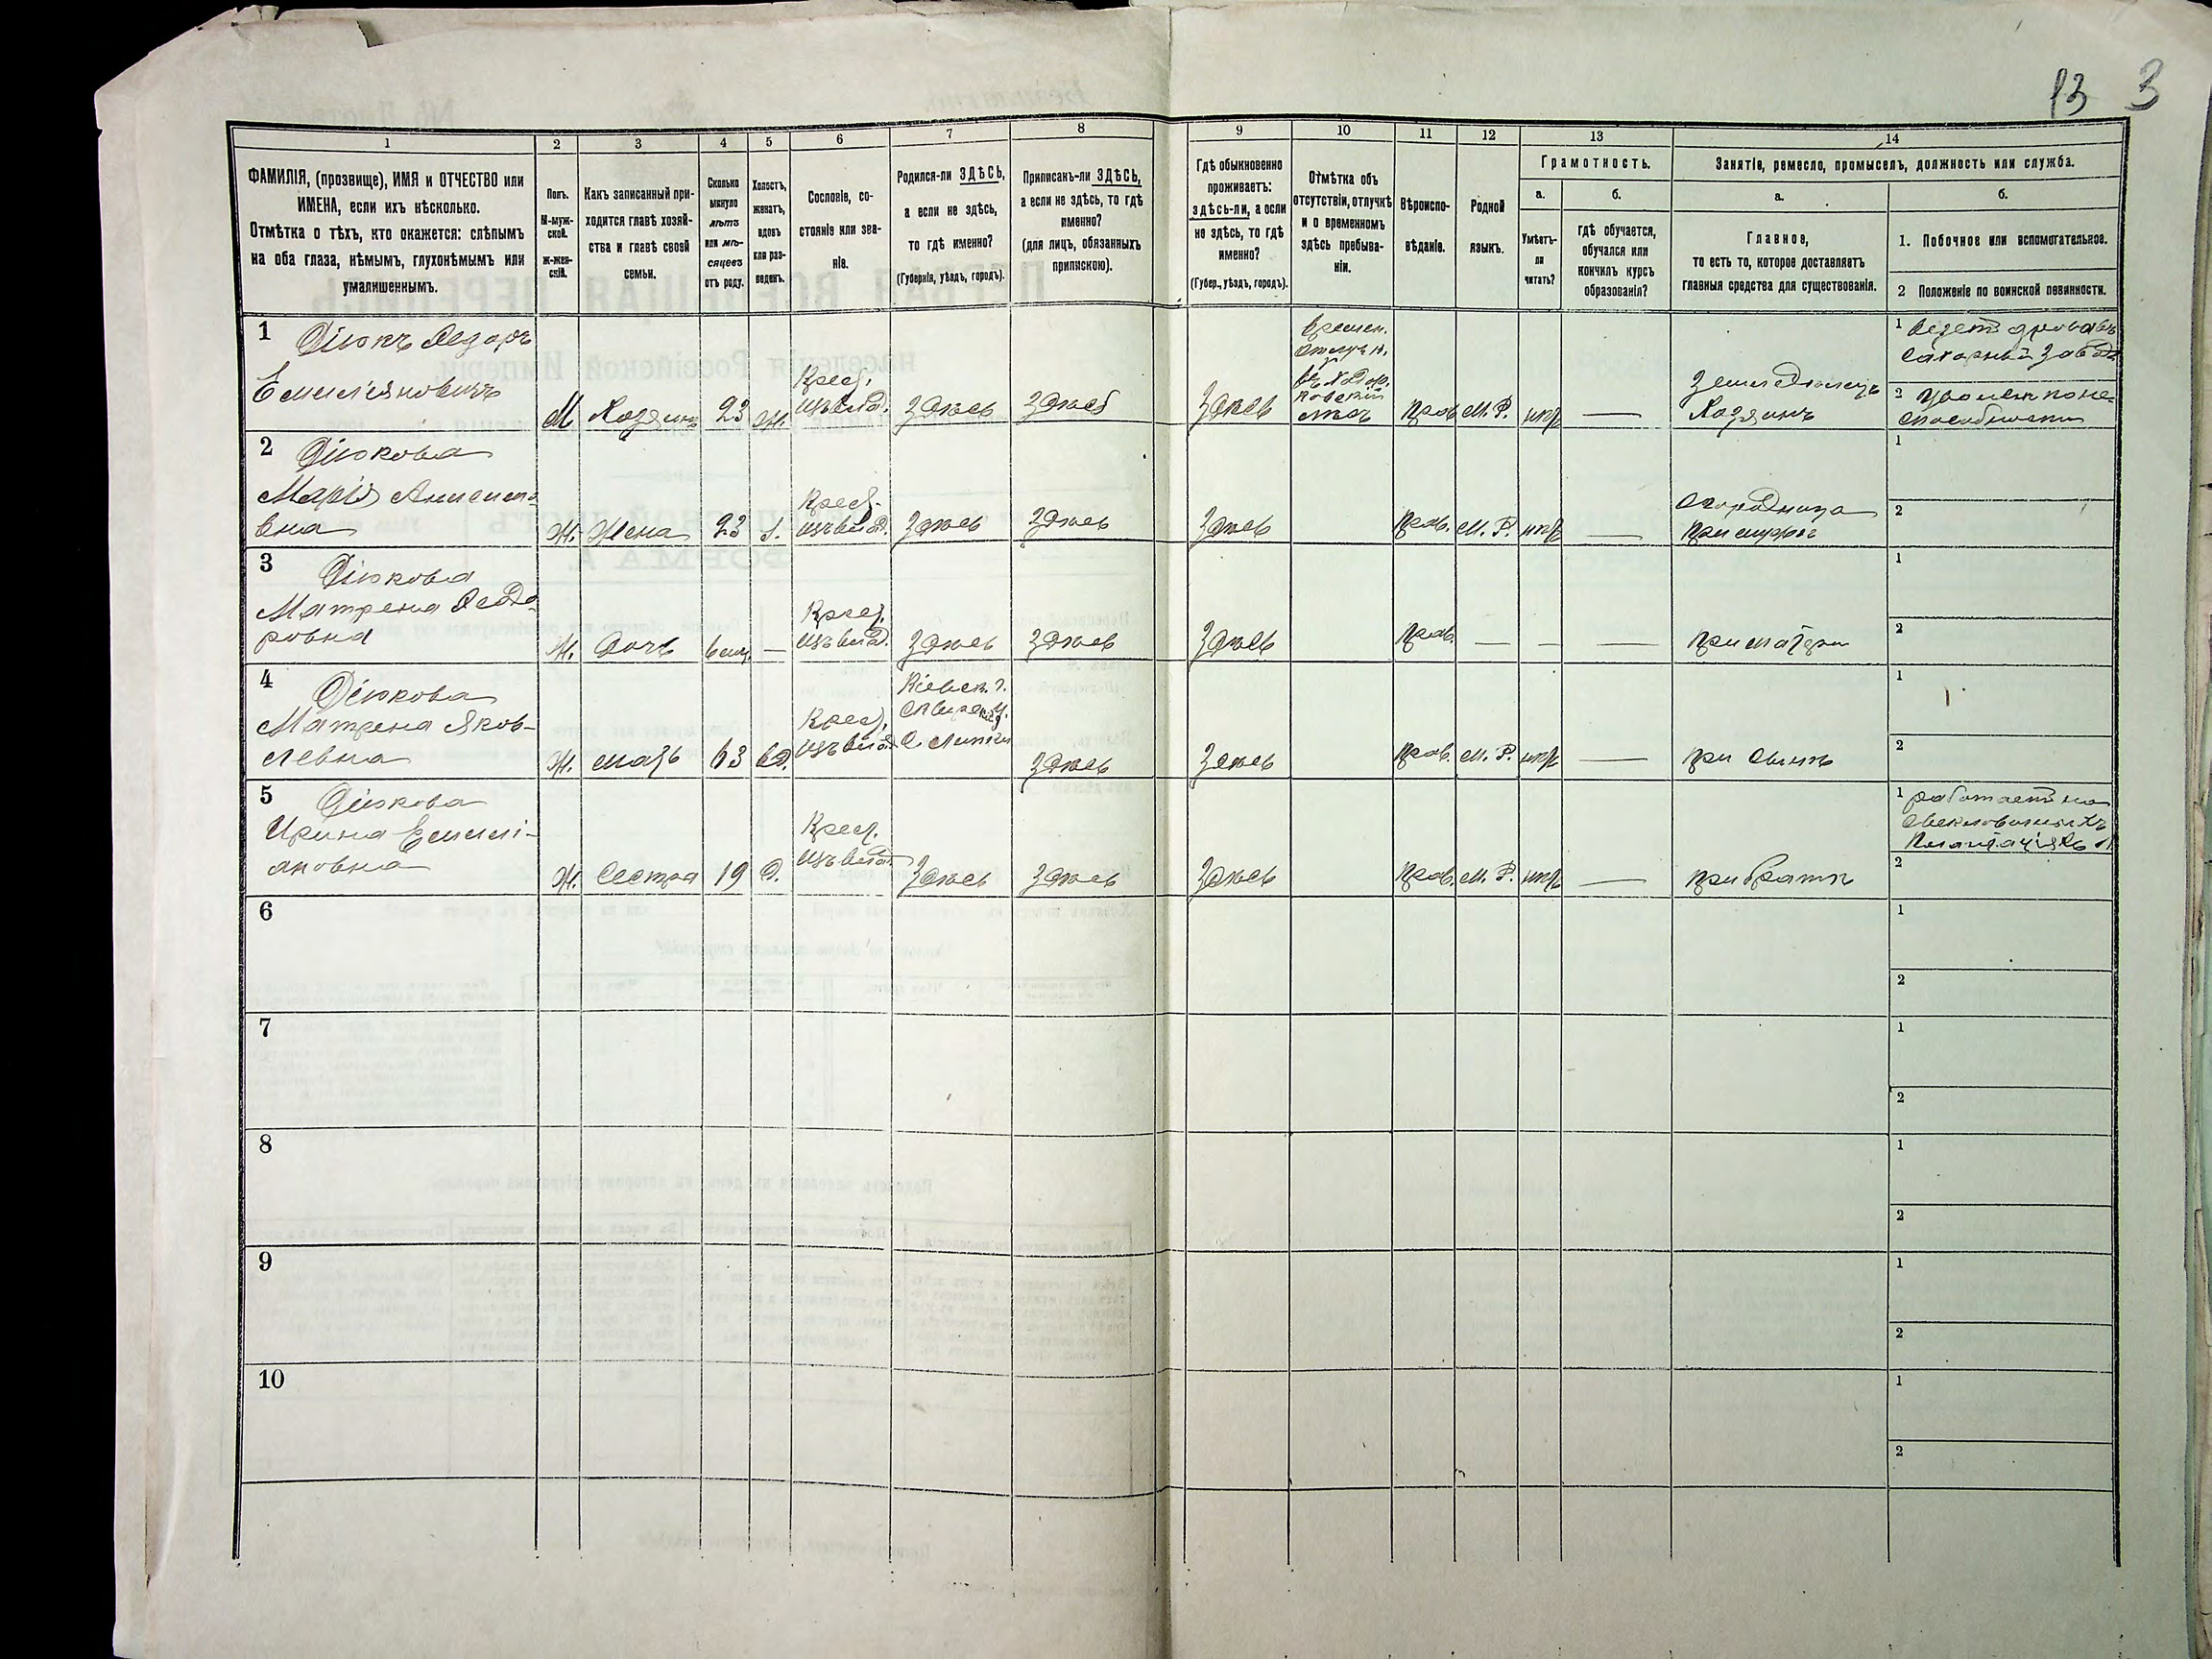 13 3
1 2 3 4 5 6 7 8 9 10 11 12 13 14
ФАМИЛІЯ, (прозвище), ИМЯ и ОТЧЕСТВО или
ИМЕНА, если ихъ нѣсколько.
Отмѣтка о тѣхъ, кто окажется: слѣпымъ
на оба глаза, нѣмымъ, глухонѣмымъ или
умалишеннымъ.
Полъ.
М-муж-
ской.
ж-жен-
скій.
Какъ записанный при-
ходится главѣ хозяй-
ства и главѣ своей
семьи.
Сколько
минуло
лѣтъ
или мѣ-
сяцевъ
отъ роду.
Холостъ,
женатъ,
вдовъ
или раз-
веденъ.
Сословіе, со-
стояніе или зва-
ніе.
Родился-ли ЗДѢСЬ,
а если не здѣсь,
то гдѣ именно?
(Губернія, уѣздъ, городъ).
Приписанъ-ли ЗДѢСЬ,
а если не здѣсь, то гдѣ
именно?
(для лицъ, обязанныхъ
припискою).
Гдѣ обыкновенно
проживаетъ:
здѣсь-ли, а если
не здѣсь, то гдѣ
именно?
(Губер., уѣздъ, городъ).
Отмѣтка объ
отсутствіи, отлучкѣ
и о временномъ
здѣсь пребыва-
ніи.
Вѣроиспо-
вѣданіе.
Родной
языкъ.
Грамотность.
а.
Умѣетъ-
ли
читать?
б.
гдѣ обучается,
обучался или
кончилъ курсъ
образованія?
Занятіе, ремесло, промыселъ, должность или служба.
а.
Главное,
то есть то, которое доставляетъ
главныя средства для существованія.
б.
1. Побочное или вспомогательное.
2 Положеніе по воинской повинности.
1 Дiюкъ Ѳедоръ
Емиліяновичъ
М Хозяинъ 23 ж.
Крест.
изъ влад.
Здѣсь Здѣсь Здѣсь
Времен.
отлуч.
Прав М. Р. нѣтъ —
Земледѣлецъ
Хозяинъ
1 Везетъ дрова въ
Сахарный завод
2
2 Дiюкова
Марія
вна
Ж. Жена 23 З.
Крест.
изъ влад.
Здѣсь Здѣсь Здѣсь Прав. М. Р. нѣтъ —
при мужѣ
1
2
3 Дiюкова
Матрена Ѳедо-
ровна
Ж. Дочь 6 мц. —
Крест.
изъ влад.
Здѣсь Здѣсь Здѣсь Прав. — — — при матери
1
2
4 Дiюкова
Матрена Яков-
левна
Ж. мать 63 вд.
Крест.
изъ влад.
Кіевск. г.
Сквирск. у.
с. Липки
Здѣсь Здѣсь Прав. М. Р. нѣтъ — при сынѣ
1
2
5 Дiюкова
Ирина Емилі-
ановна
Ж. Сестра 19 Д.
Крест.
изъ влад.
Здѣсь Здѣсь Здѣсь Прав. М. Р. нѣтъ — при братѣ
1 работаетъ на
свекловичныхъ
плантаціяхъ
2
6 1
2
7 1
2
8 1
2
9 1
2
10 1
2